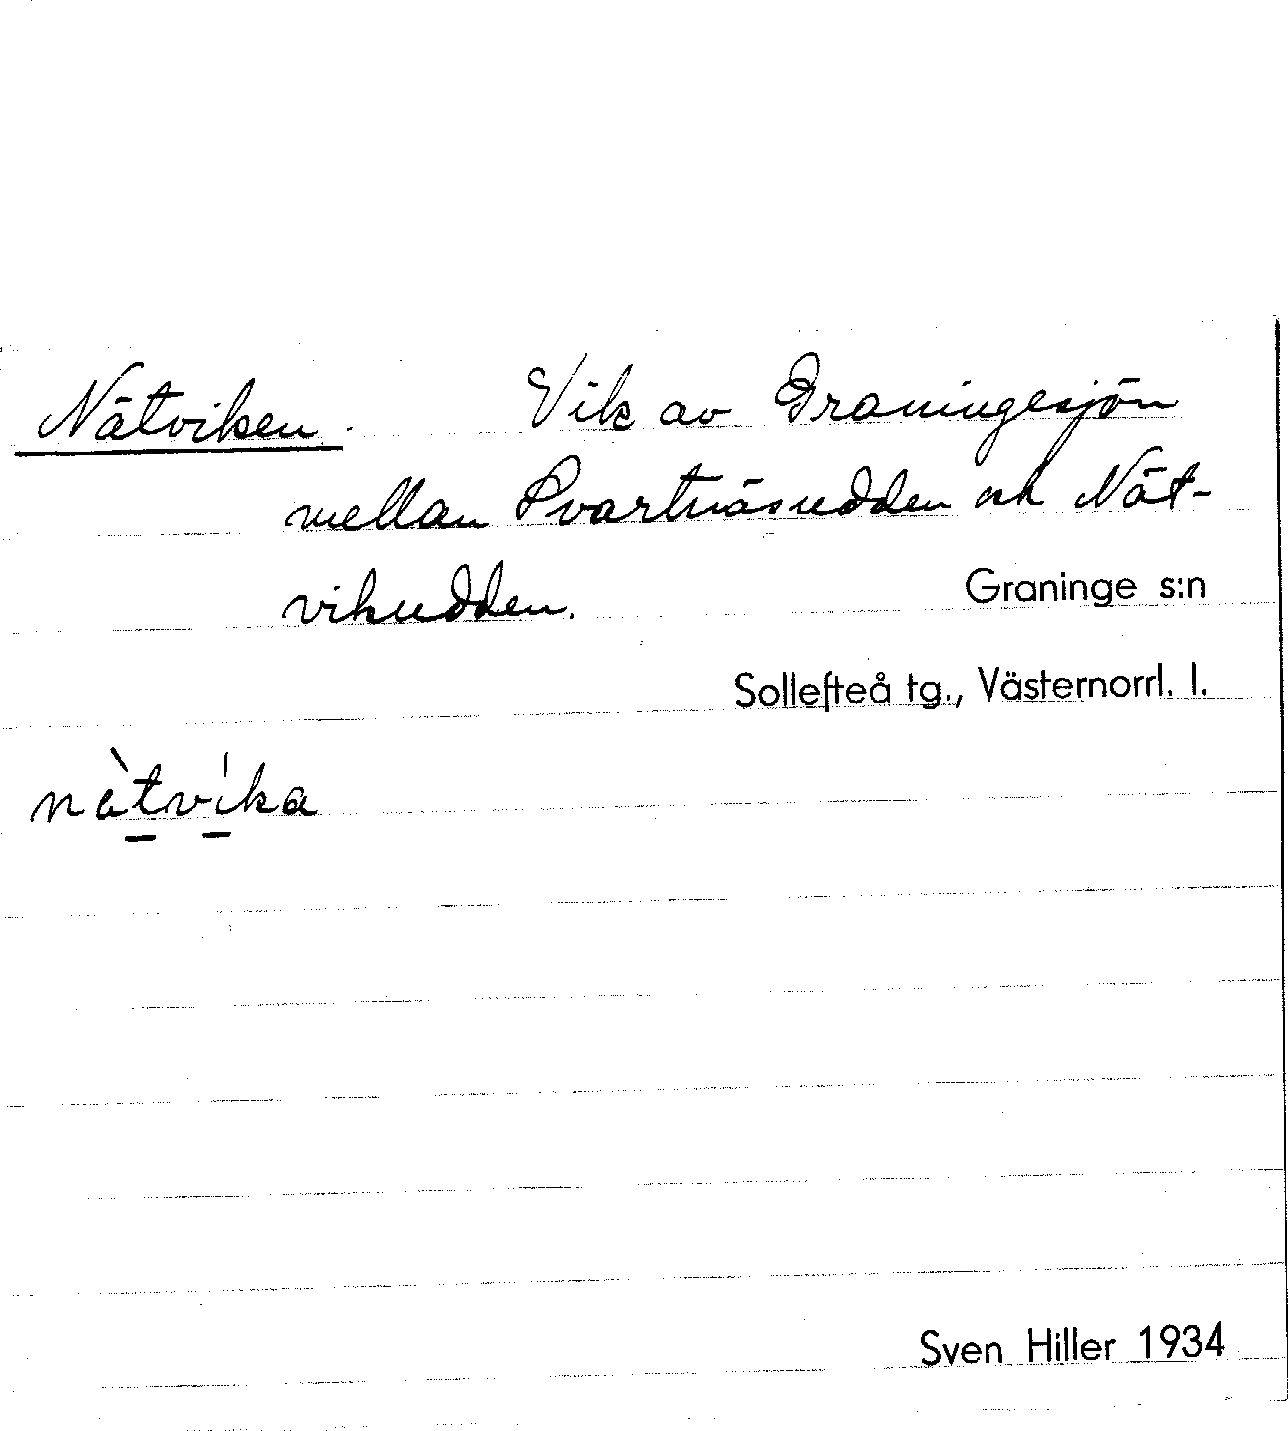 Nätviken. Vik av Graningesjön
mellan Svartnäsudden och Nät-
vikudden.
Graninge s:n
Sollefteå tg., Västernorrl. l.
nàtvíka
Sven Hiller 1934